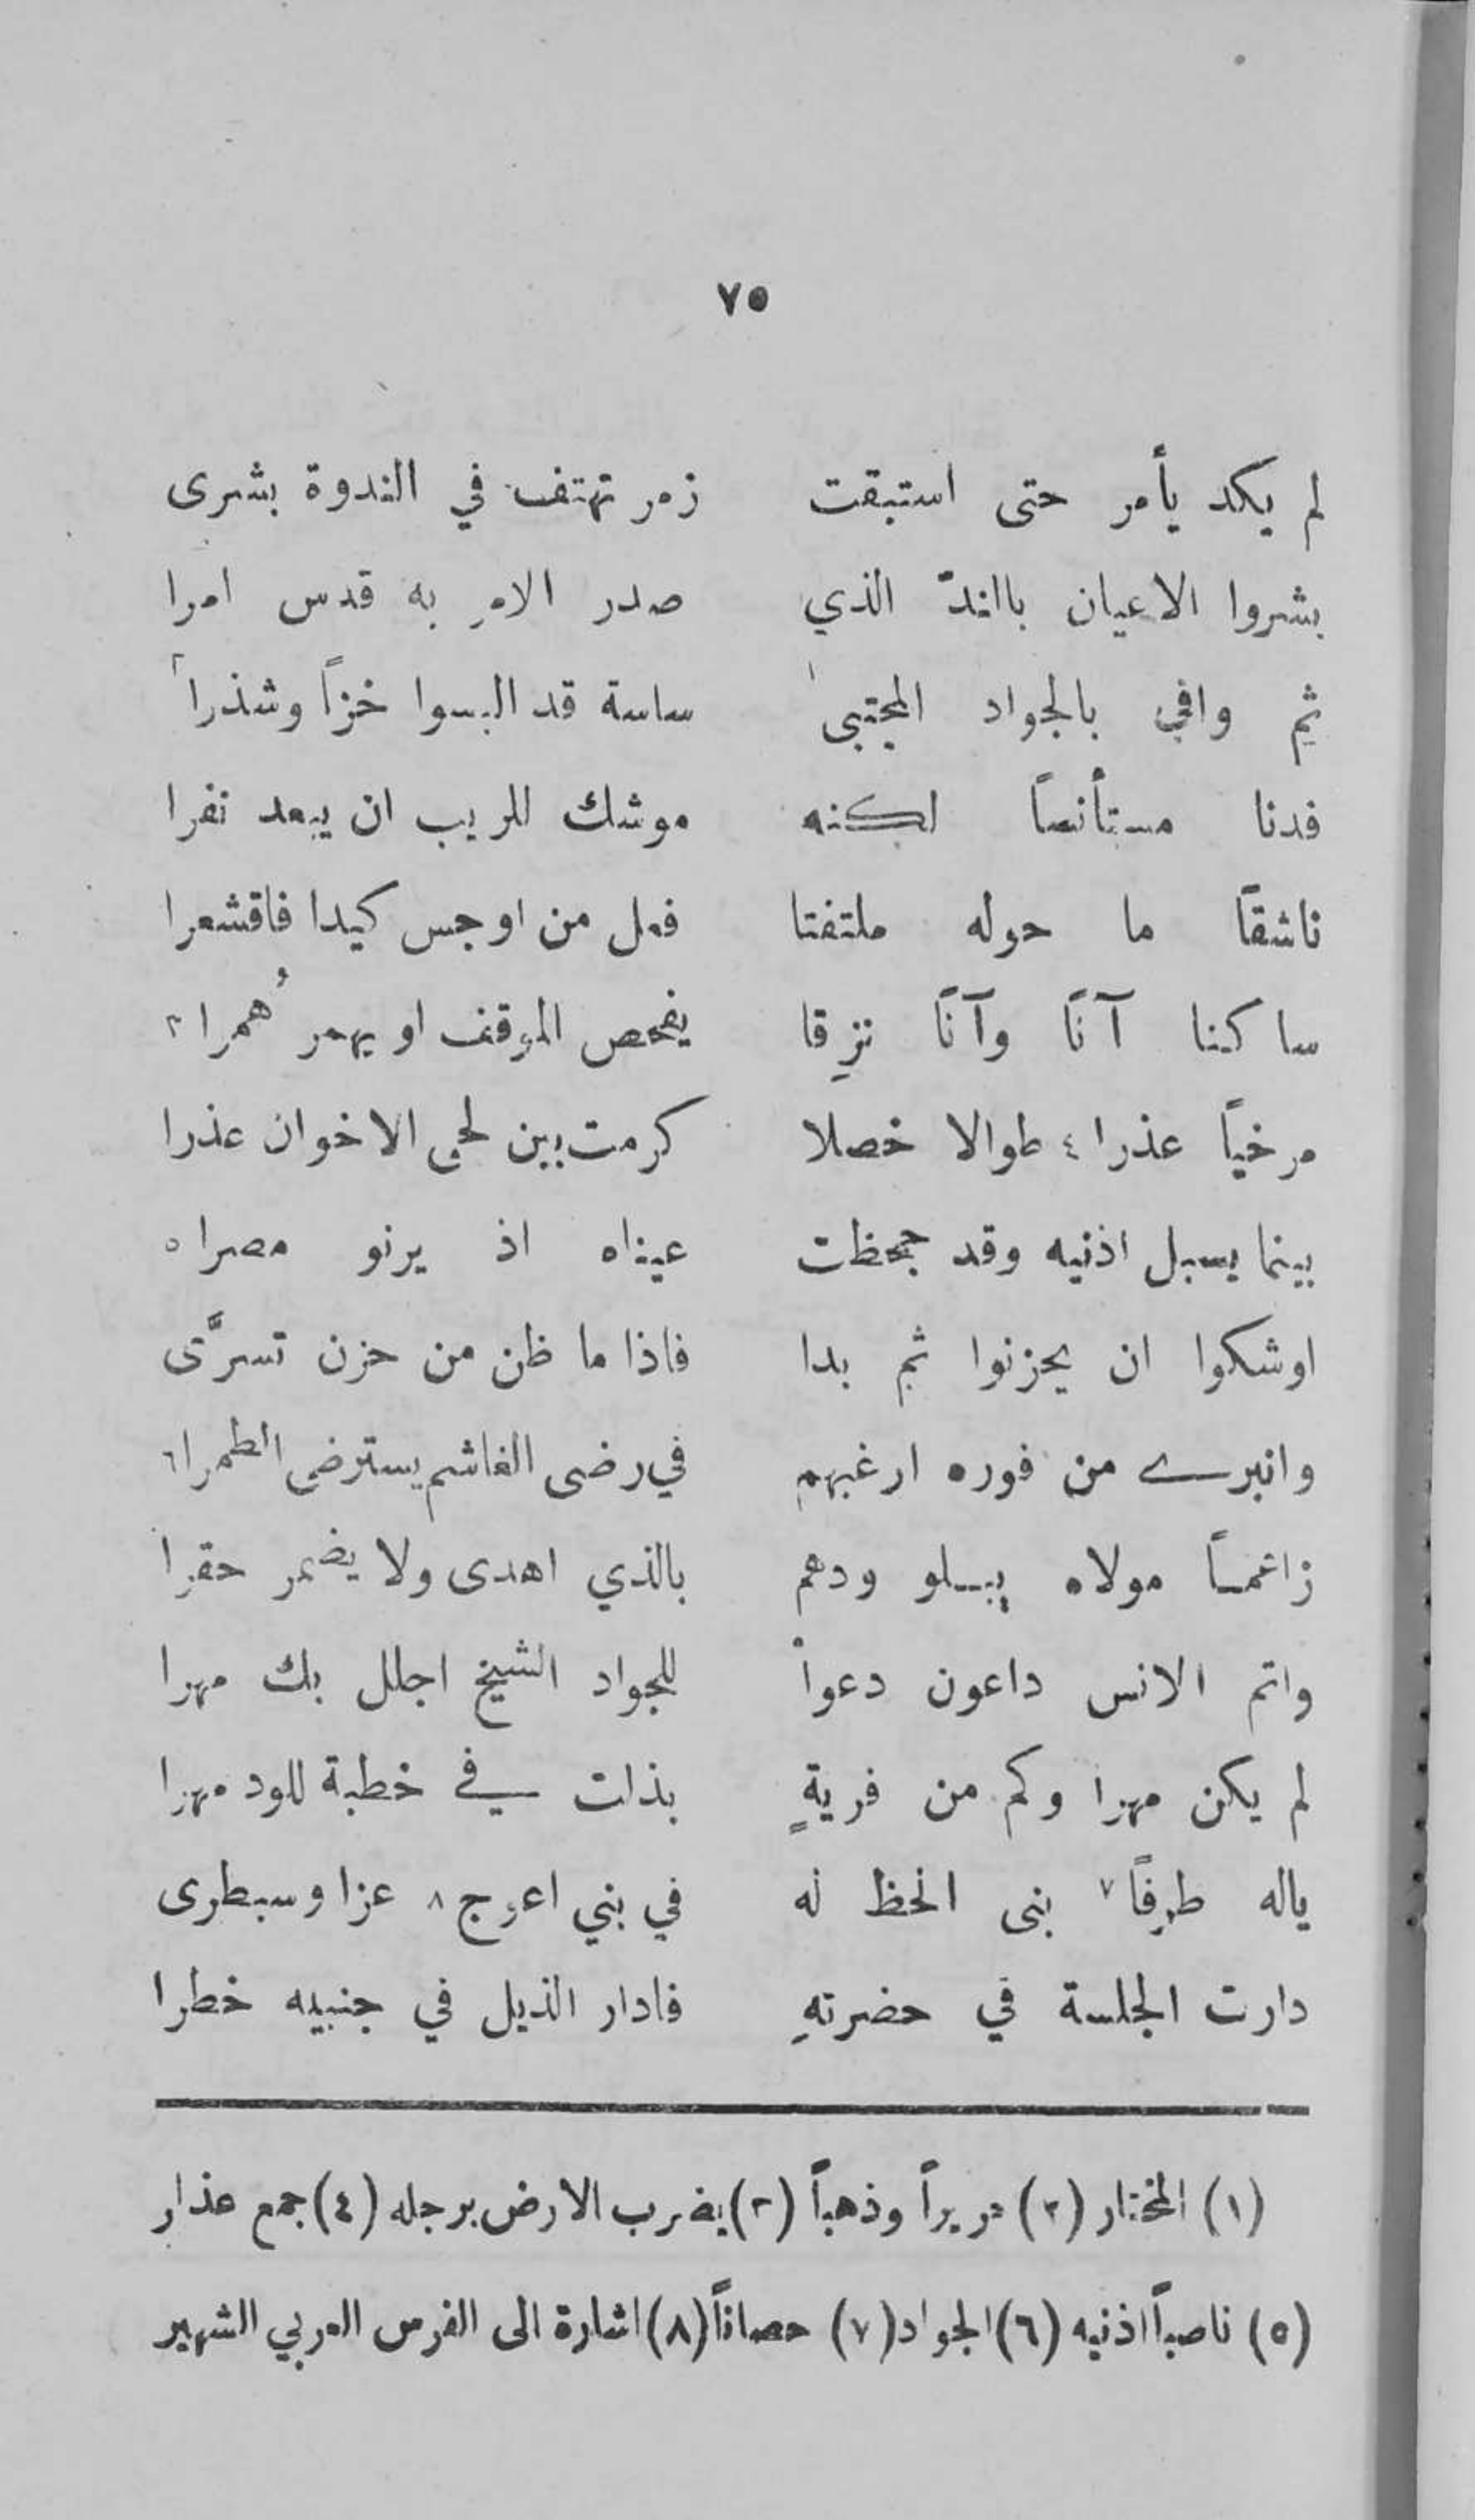 ٧٥
لم يكد يأمر حتى استبقت زمر تهتف في الندوة بشرى
بشروا الاعيان بالندّ الذي صدر الامرِ به قدس امرا
ثم وافى بالجواد المجتبى١ ساسة قد البسوا خزاً وشذراً٢
فدنا مستأنساً لكنه موشك للريب ان يبعد نفرا
ناشقاً ما حوله ملتفتا فعل من اوجس كيدا فاقشعرا
ساكنا آناً وآناً نزِقا يفحص الموقف او يهمر ُهمرا٣
مرخياً عذرا٤ طوالا خصلا كرمت بين لحى الاخوان عذرا
بينما يسبل اذنيه وقد جحظت عيناه اذ يرنو مصرا٥
اوشكوا ان يحزنوا ثم بدا فاذا ما ظن من حزن تسرَّى
وانبرى من فوره ارغبهم في رضى الغاشم يسترضي الطمرا٦
زاعمـاً مولاه يبـلو ودهم بالذي اهدى ولا يضمر حقرا
واتم الانس داعون دعواْ للجواد الشيخ اجلل بك مهرا
لم يكن مهرا وكم من فريةٍ بذلت في خطبة للود مهرا
ياله طرِفاً٧ بنى الحظ له في بني اعوج٨ عزا وسبطرى
دارت الجلسة في حضرتهِ فادار الذيل في جنبيه خطرا
(١) المختار (٢) حريراً وذهباً (٣) يضرب الارض برجله (٤) جمع عذار
(٥) ناصباً اذنيه (٦) الجواد (٧) حصاناً (٨) اشارة الى الفرس العربي الشهير